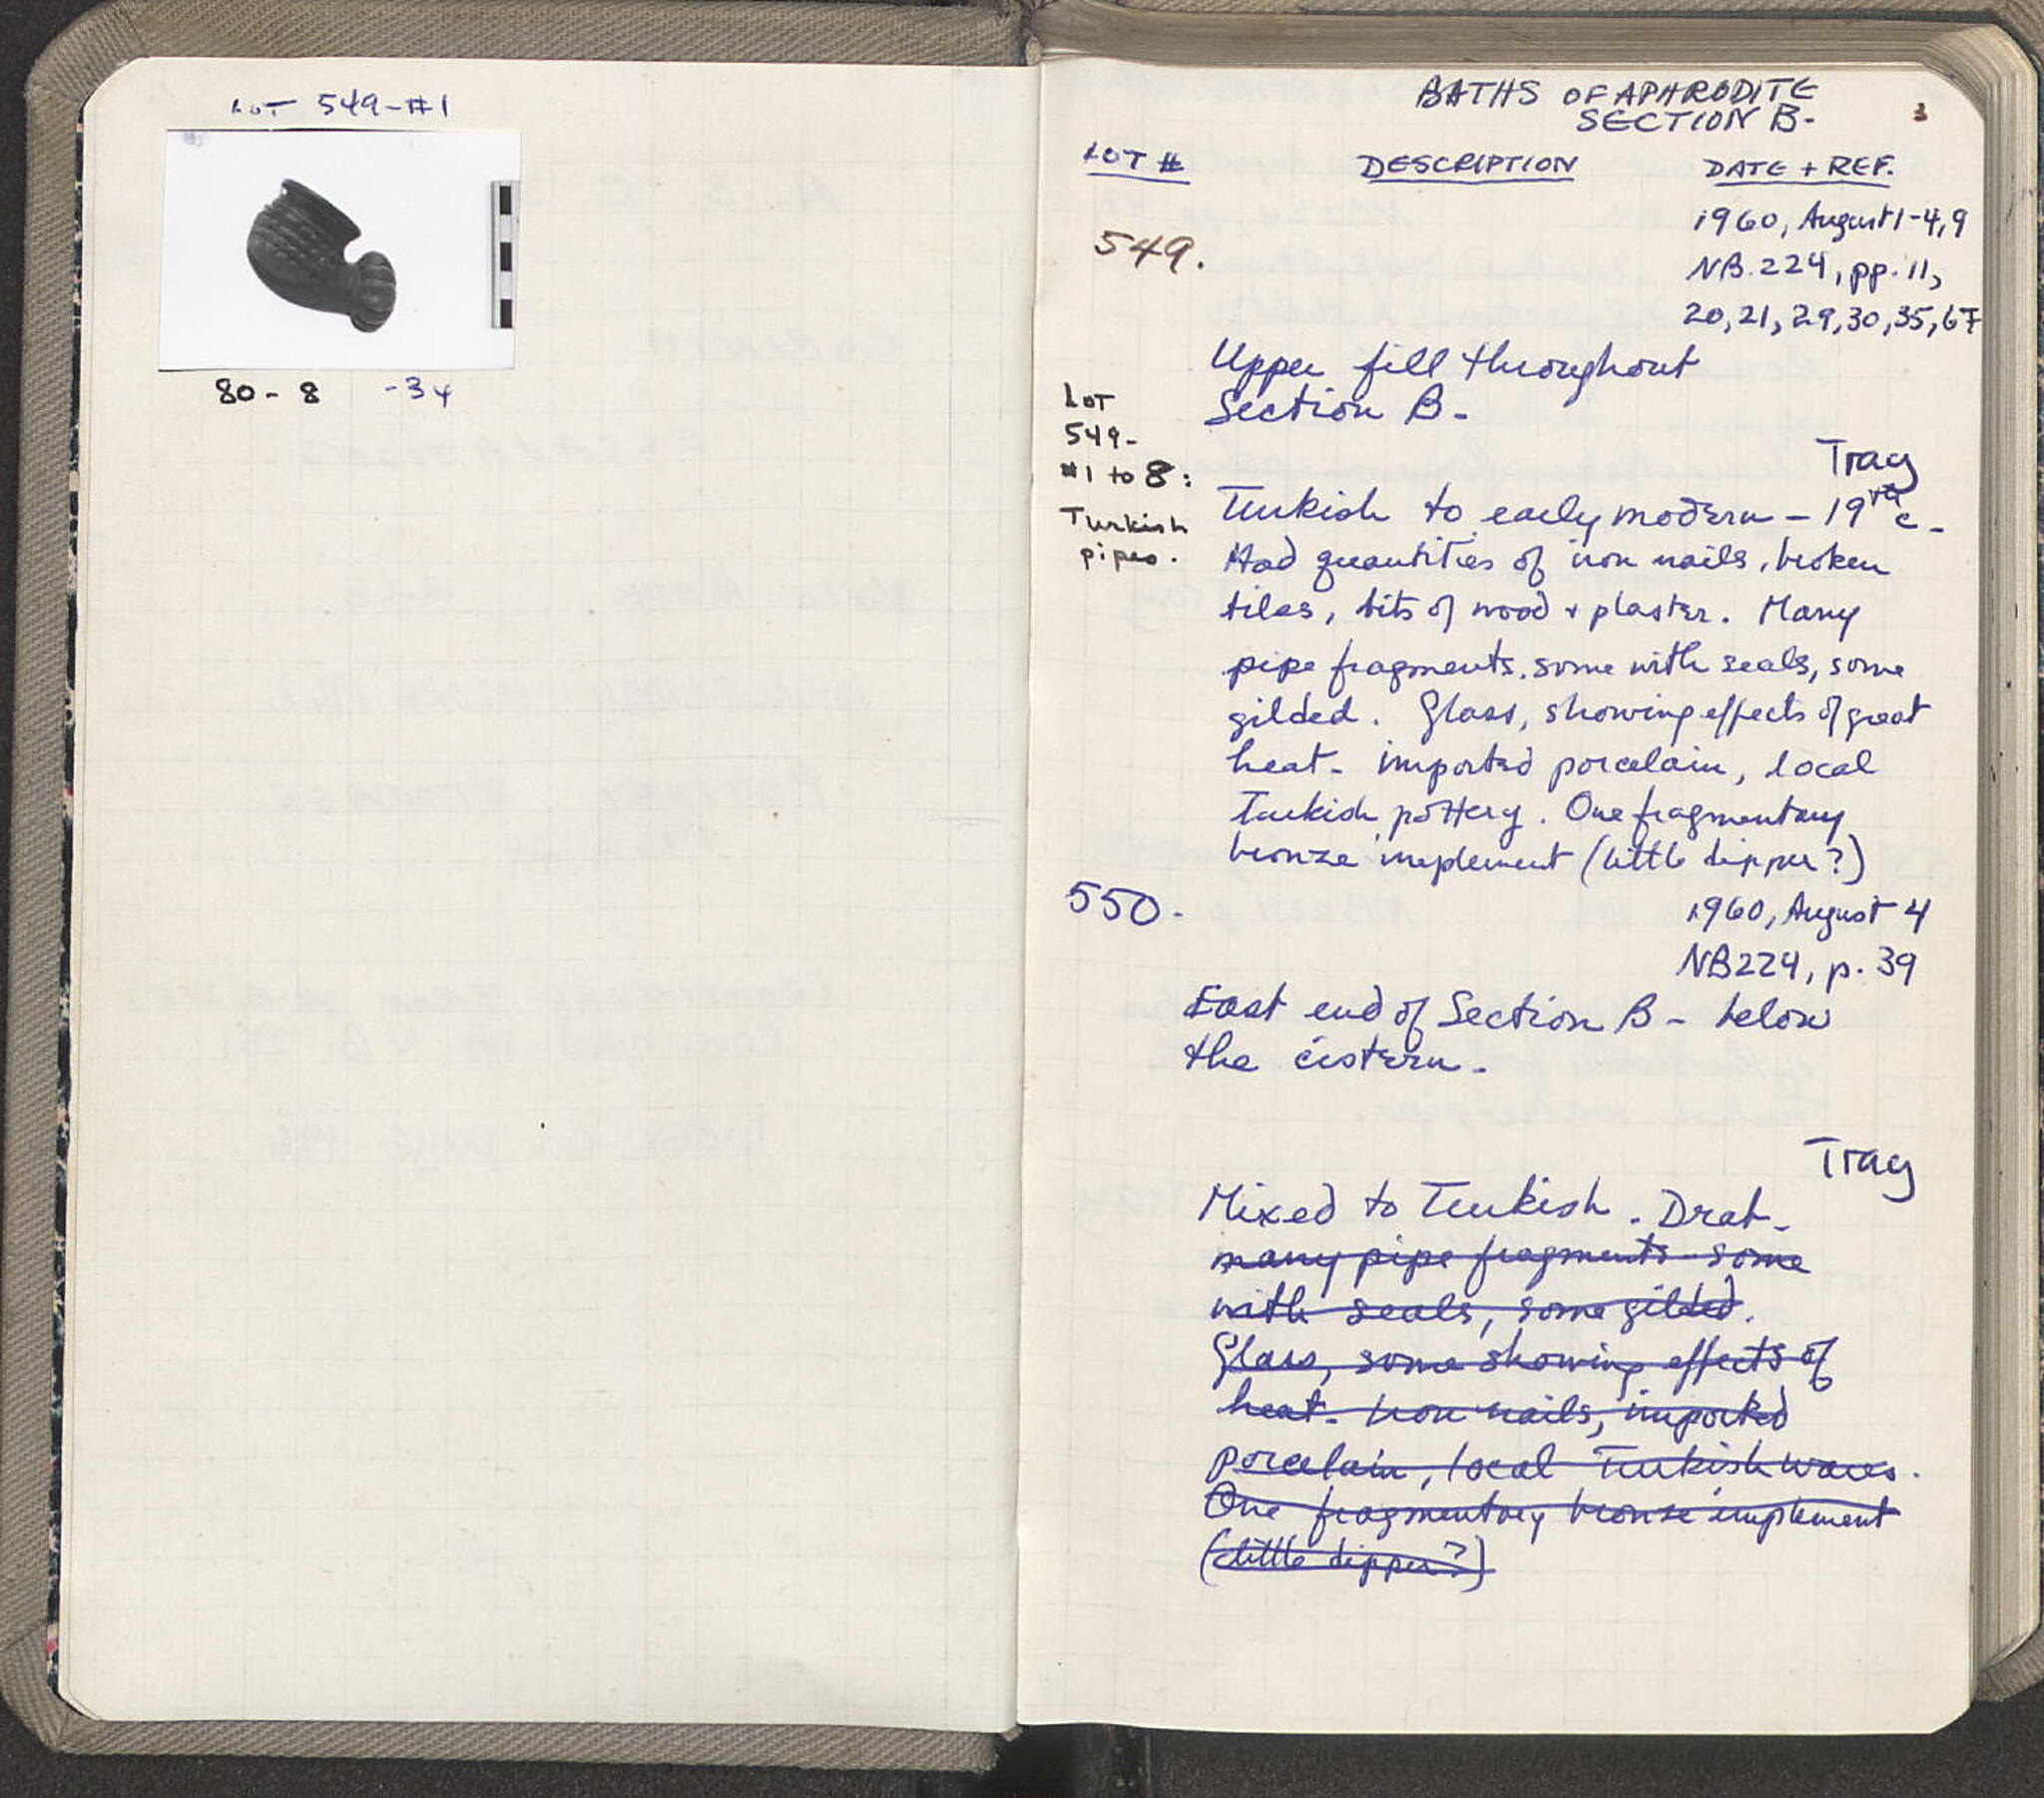 LOT 549-#1
80-8 -34
BATHS OF APHRODITE
SECTION B-
3
LOT # DESCRIPTION DATE + REF.
549.
1960, August 1-4, 9
NB. 224, pp. 11,
20, 21, 29, 30, 35, 67
Upper fill throughout
Section B-
LOT
549-
#1 to 8:
Turkish
pipes.
Tray
Turkish to early modern - 19th c.
Had quantities of iron nails, broken
tiles, bits of wood + plaster. Many
pipe fragments, some with seals, some
gilded. Glass, showing effects of great
heat- imported porcelain, local
Turkish pottery. One fragmentary
bronze implement (little dipper?)
550-
1960, August 4
NB224, p. 39
East end of Section B - below
the cistern-
Tray
Mixed to Turkish. Drat-
many pipe fragments some
with seals, some gilded.
Glass, some showing effects of
heat- Iron nails, imported
porcelain, local Turkish wares.
One fragmentary bronze implement
(little dipper?)